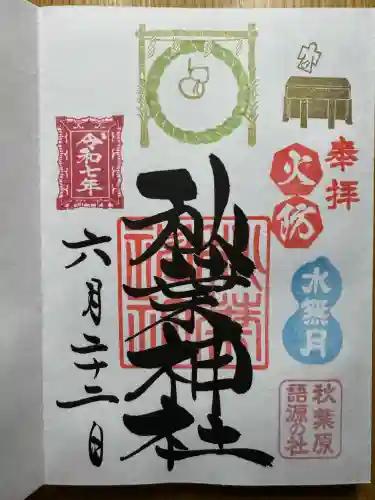 奉拝
火防
水無月
秋葉原
語源の社
秋葉神社
令和七年
六月二十二日